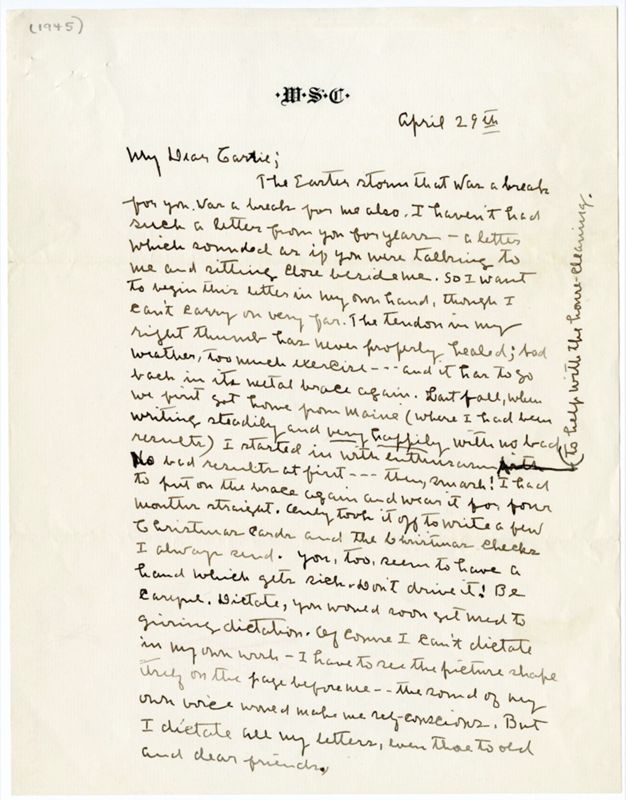 (1945)
·W·S·C·
April 29th
My Dear Carrie;
The Easter storm that was a break
for you. Was a break for me also. I haven't had
such a letter from you for years – a letter
which sounded as if you were talking to
me and sitting close beside me. So I want
to begin this letter in my own hand, though I
can't carry on very far. The tendon in my
right thumb has never properly healed; bad
weather, too much exercise --- and it has to go
back in its metal brace again. Last fall, when
we first got home from Maine (where I had been
writing steadily and very happily with no bad
results) I started in with enthusiasm
(to help with the house-cleaning.
No bad results at first --- then, smash! I had
to put on the brace again and wear it for four
months straight. Only took it off to write a few
Christmas Cards and the Christmas checks
I always send. You, too, seem to have a
hand which gets sick. Don't drive it! Be
careful. Dictate, you would soon get used to
giving dictation. Of course I can't dictate
in my own work – I have to see the picture shape
itself on the page before me -- the sound of my
own voice would make me self-conscious. But
I dictate all my letters, even those to old
and dear friends.